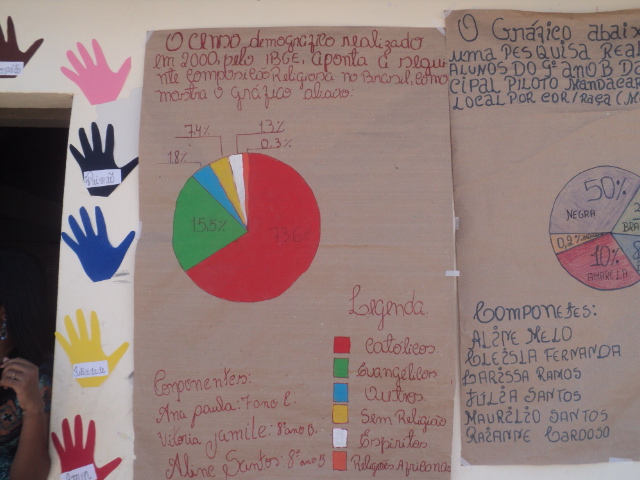 O censo demográfico realizado
em 2000, pelo IBGE, aponta a segui
nte composição Religiosa no Brasil, como
mostra o gráfico abaixo:
7,4%
1,3%
0,3%
1,8%
15,5%
73,6
Legenda.
Católicos
Evangélicos
Outros
Sem Religião
Espíritos
Religiões Africanas
Componentes:
Ana paula: 7º ano C.
Vitória jamile: 8º ano B.
Aline Santos: 8º ano B
O Gráfico abaix
uma PESQUISA REAL
ALUNOS DO 9º ano B DA
CIPAL PILOTO MANDACAR
LOCAL POR COR/RAÇA (M
50%
NEGRA
2
BRA
0,2%
10%
AMARELA
8
COMPONETES:
ALINE MELO
FERNANDA
LARISSA RAMOS
JULIA SANTOS
MAURÍLIO SANTOS
RAIANNE CARDOSO